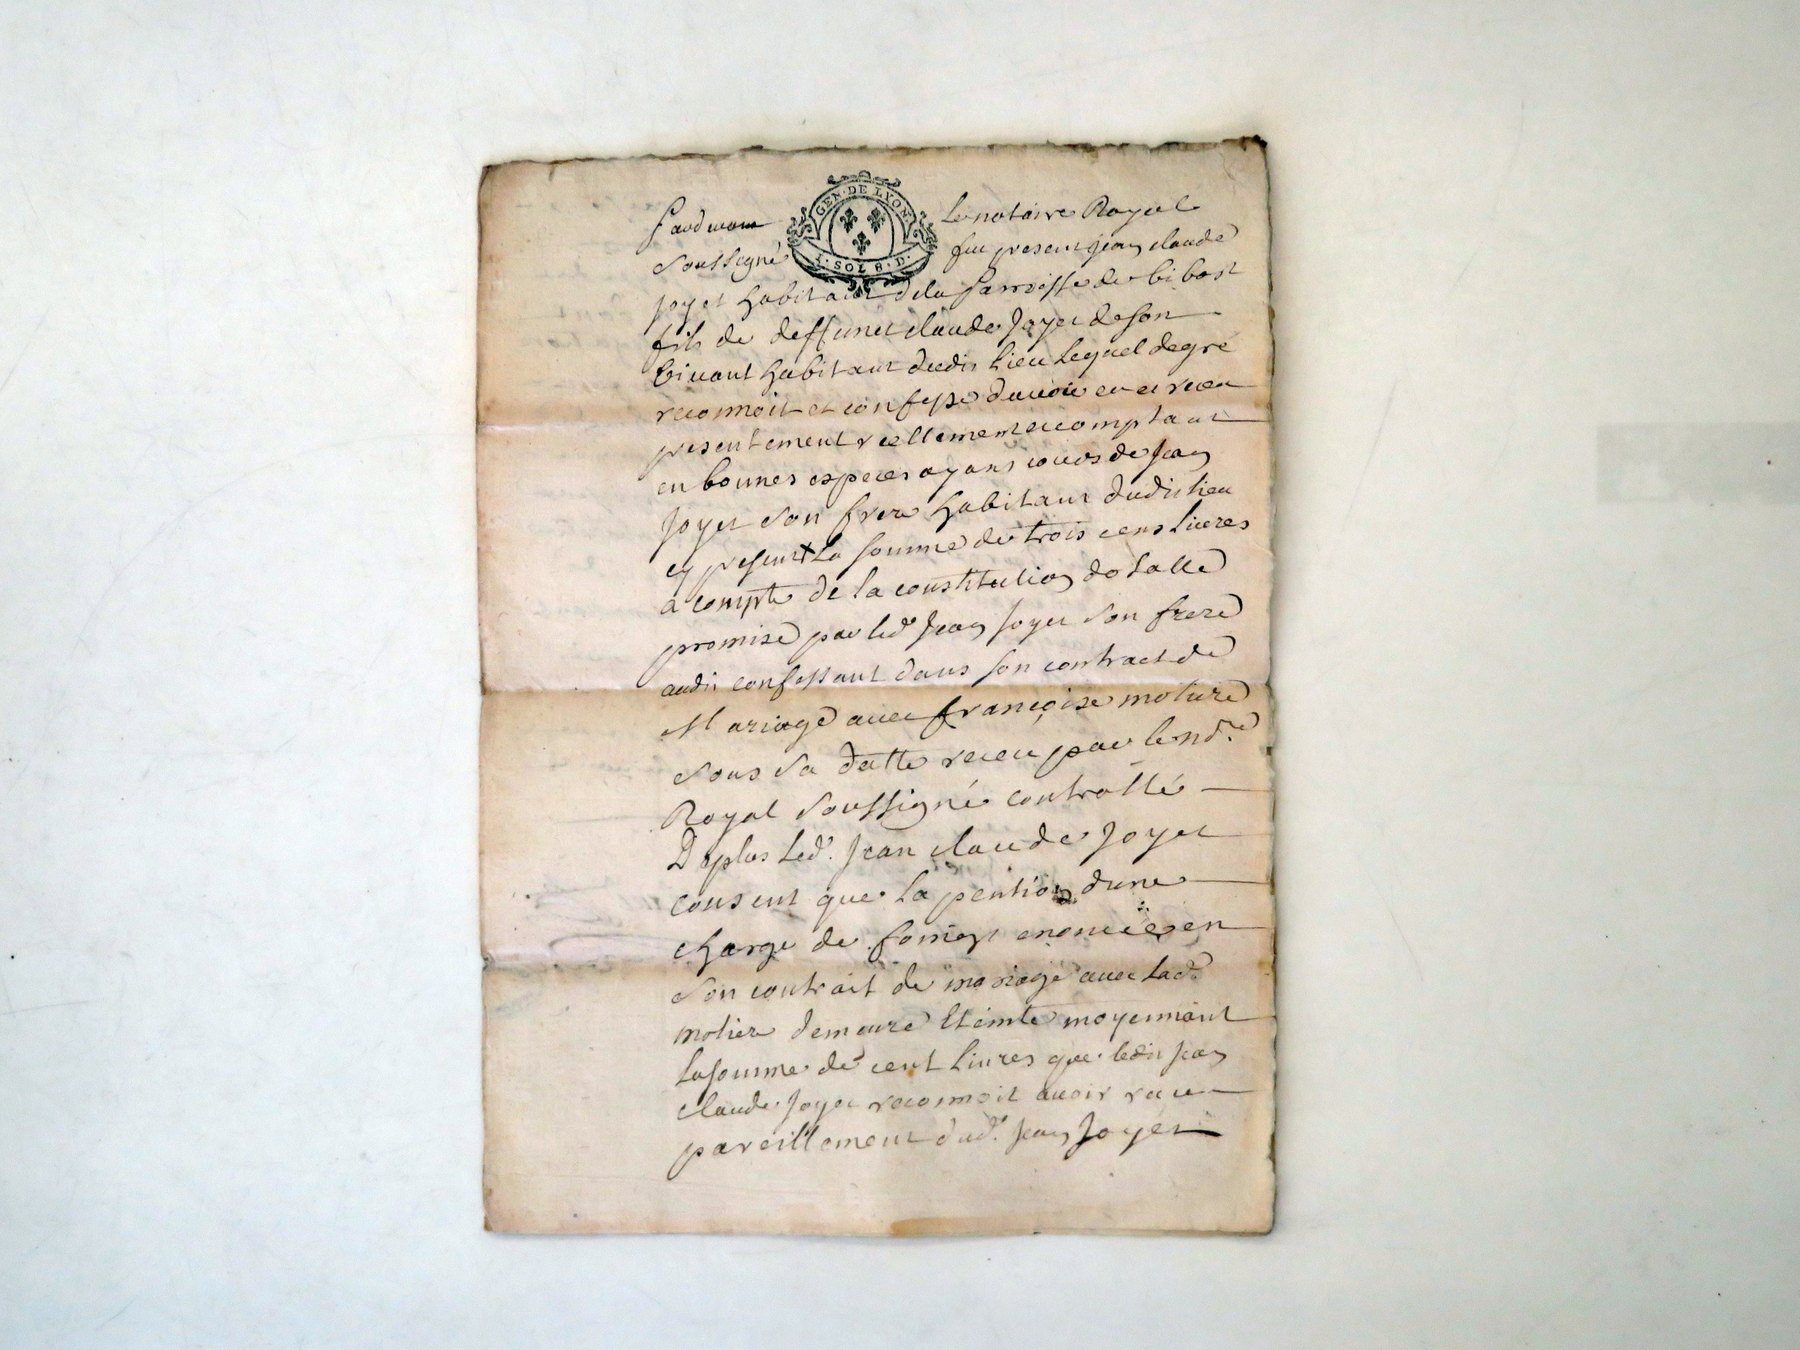 GEN·DE LYON·
I·SOL 8·D·
Pardevant Le notaire Royal
soussigné fut present jean claude
joyet habitant dela parroisse de bibost
fils de deffunct claude joyet de son
vivant habitant dudit lieu Lequel de gré
reconnoit et confesse davoir eu et receu
presentement reellement et comptant
en bonnes especes ayans cours de jean
joyet son frere habitant dudit lieu
cy present La somme de trois cens livres
a compte de la constitution dotalle
promise par led. jean joyet son frere
audit confessant dans son contract de
Mariage avec françoise molière
sous sa datte receu par le nore
Royal soussigné controllé
De plus Led. jean claude joyet
consent que La pention dune
charge de enoncée en
son contrait de mariage avec Lade
molière demeure Eteinte moyennant
La somme de cent Livres que ledit jean
claude joyet reconnoit avoir receu
pareillement dud. jean joyet